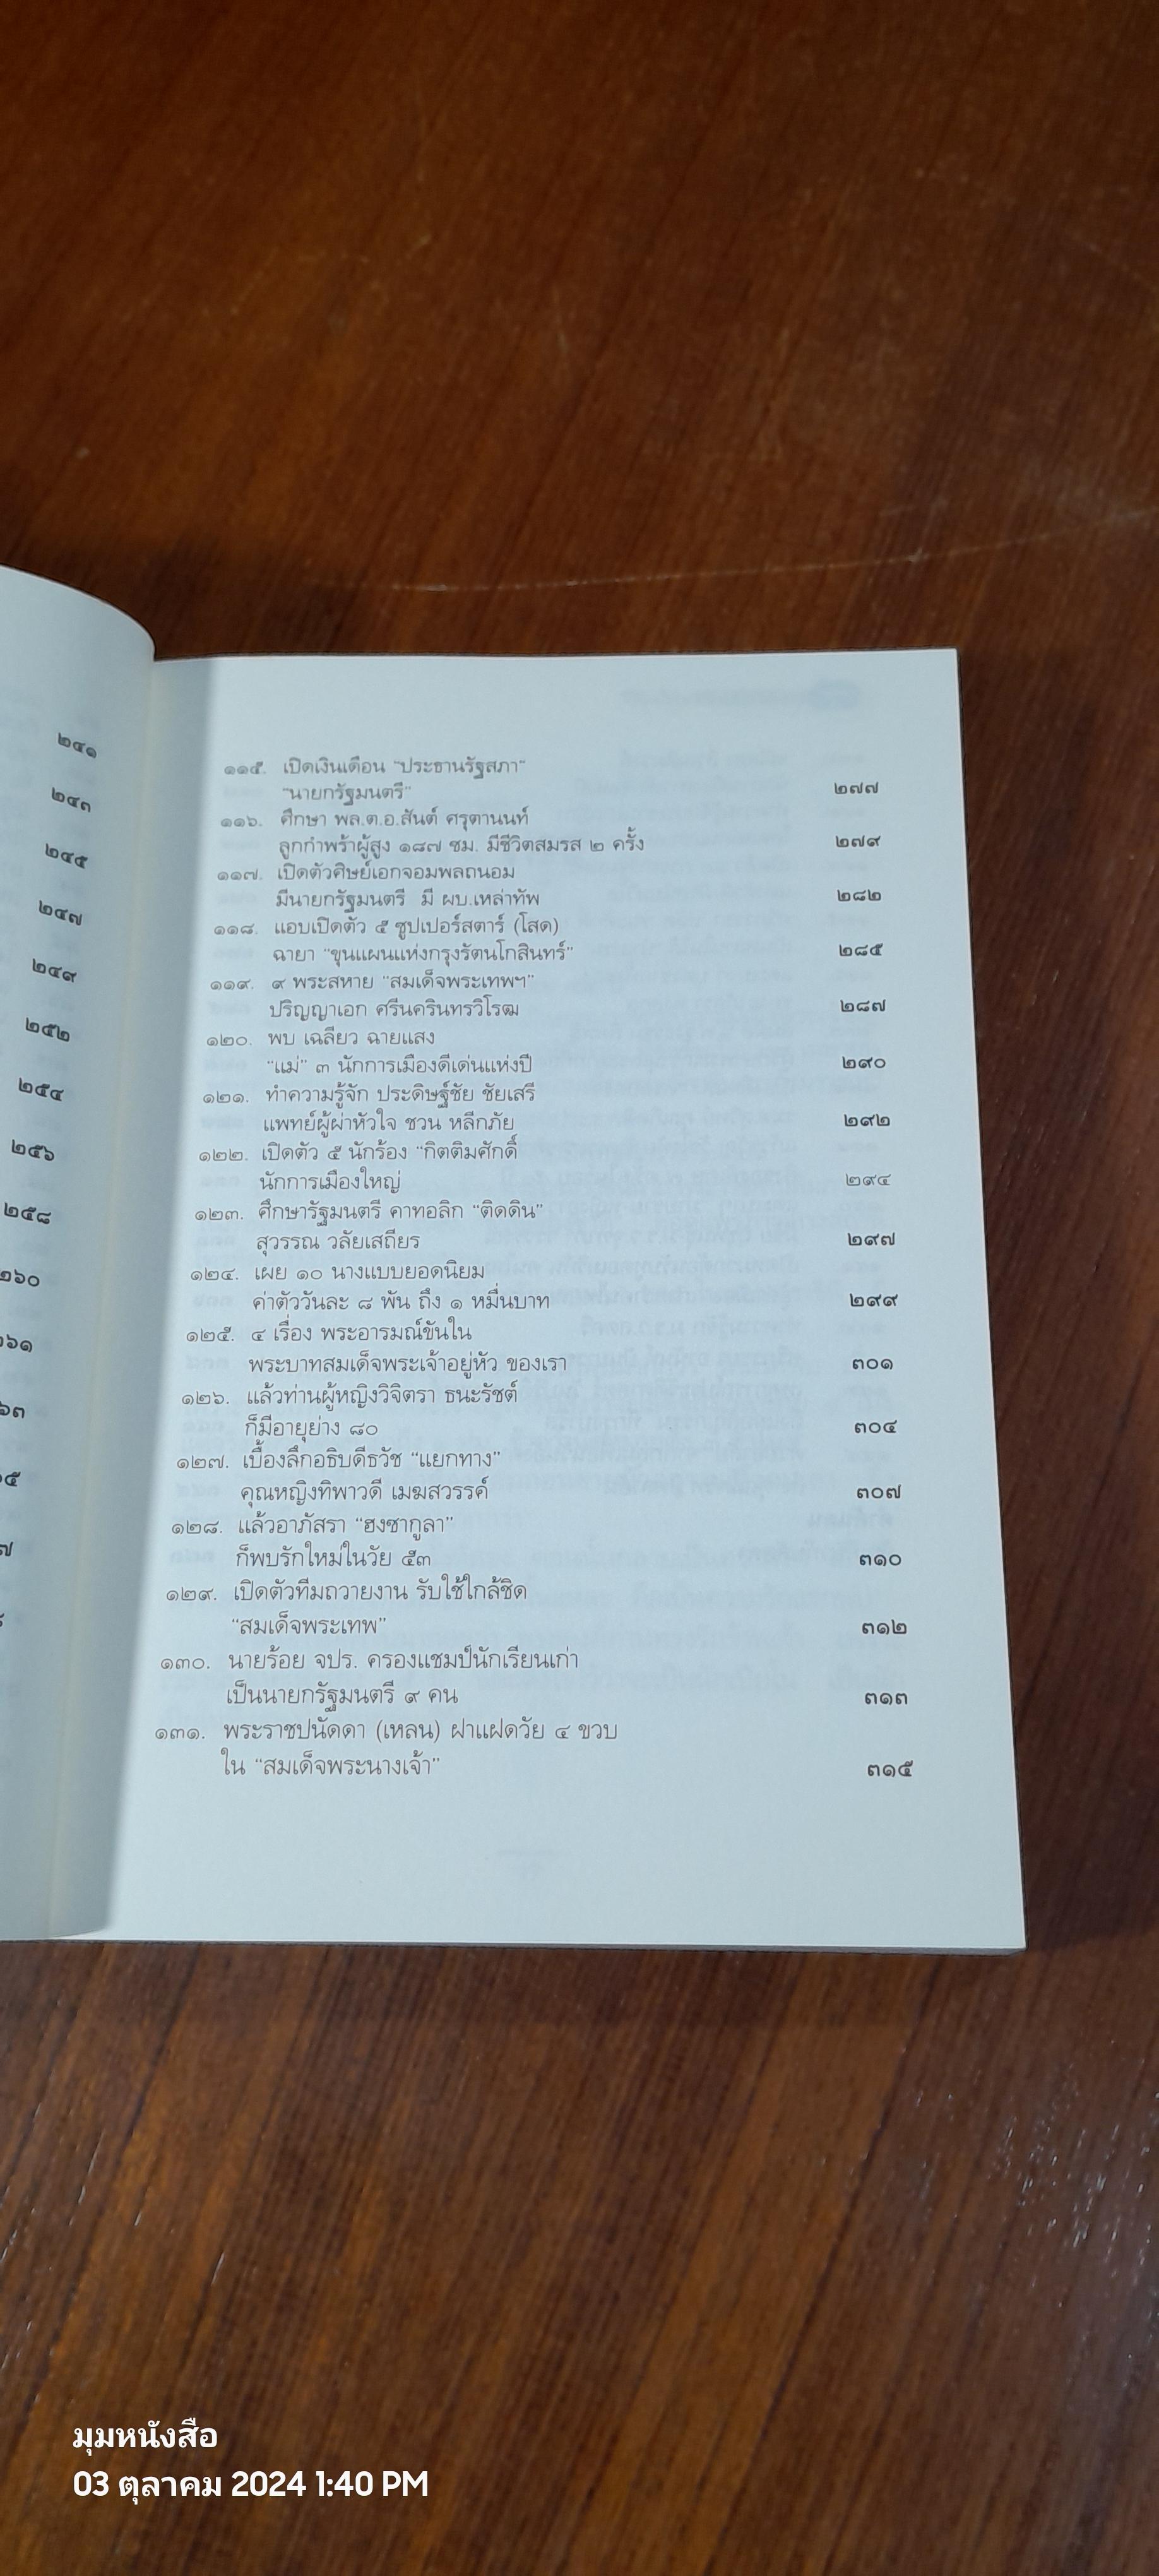 ๒๔๑
๒๔๓
๒๔๕
๒๔๗
๒๔๙
๒๕๒
๒๕๔
๒๕๖
๒๕๘
๒๖๐
๑๑๕. เปิดเงินเดือน "ประธานรัฐสภา"
"นายกรัฐมนตรี" ๒๗๗
๑๑๖. ศึกษา พล.ต.อ.สันต์ ศรุตานนท์
ลูกกำพร้าผู้สูง ๑๘๗ ซม. มีชีวิตสมรส ๒ ครั้ง ๒๗๙
๑๑๗. เปิดตัวศิษย์เอกจอมพลถนอม
มีนายกรัฐมนตรี มี ผบ.เหล่าทัพ ๒๘๒
๑๑๘. แอบเปิดตัว ๕ ซูปเปอร์สตาร์ (โสด)
ฉายา "ขุนแผนแห่งกรุงรัตนโกสินทร์" ๒๘๕
๑๑๙. ๙ พระสหาย "สมเด็จพระเทพฯ"
ปริญญาเอก ศรีนครินทรวิโรฒ ๒๘๗
๑๒๐. พบ เฉลียว ฉายแสง
"แม่" ๓ นักการเมืองดีเด่นแห่งปี ๒๙๐
๑๒๑. ทำความรู้จัก ประดิษฐ์ชัย ชัยเสรี
แพทย์ผู้ผ่าหัวใจ ชวน หลีกภัย ๒๙๒
๑๒๒. เปิดตัว ๕ นักร้อง "กิตติมศักดิ์
นักการเมืองใหญ่ ๒๙๔
๑๒๓. ศึกษารัฐมนตรี คาทอลิก "ติดดิน"
สุวรรณ วลัยเสถียร ๒๙๗
๑๒๔. เผย ๑๐ นางแบบยอดนิยม
ค่าตัววันละ ๘ พัน ถึง ๑ หมื่นบาท ๒๙๙
๑๒๕. ๔ เรื่อง พระอารมณ์ขันใน
พระบาทสมเด็จพระเจ้าอยู่หัว ของเรา ๓๐๑
๑๒๖. แล้วท่านผู้หญิงวิจิตรา ธนะรัชต์
ก็มีอายุย่าง ๘๐ ๓๐๔
๑๒๗. เบื้องลึกอธิบดีธวัช "แยกทาง"
คุณหญิงทิพาวดี เมฆสวรรค์ ๓๐๗
๑๒๘. แล้วอาภัสรา "ฮงซากูลา"
ก็พบรักใหม่ในวัย ๕๓ ๓๑๐
๑๒๙. เปิดตัวทีมถวายงาน รับใช้ใกล้ชิด
"สมเด็จพระเทพ" ๓๑๒
๑๓๐. นายร้อย จปร. ครองแชมป์นักเรียนเก่า
เป็นนายกรัฐมนตรี ๙ คน ๓๑๓
๑๓๑. พระราชปนัดดา (เหลน) ฝาแฝดวัย ๔ ขวบ
ใน "สมเด็จพระนางเจ้า" ๓๑๕
มุมหนังสือ
03 ตุลาคม 2024 1:40 PM